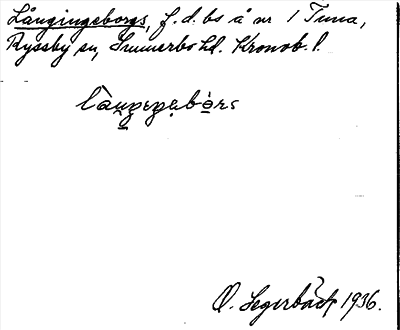 Långingeborgs, f. d. bs å nr 1 Tuna,
Ryssby sn, Sunnerbo hd. Kronob. l.
låŋgeŋebòrs
O. Segerbäck 1936.